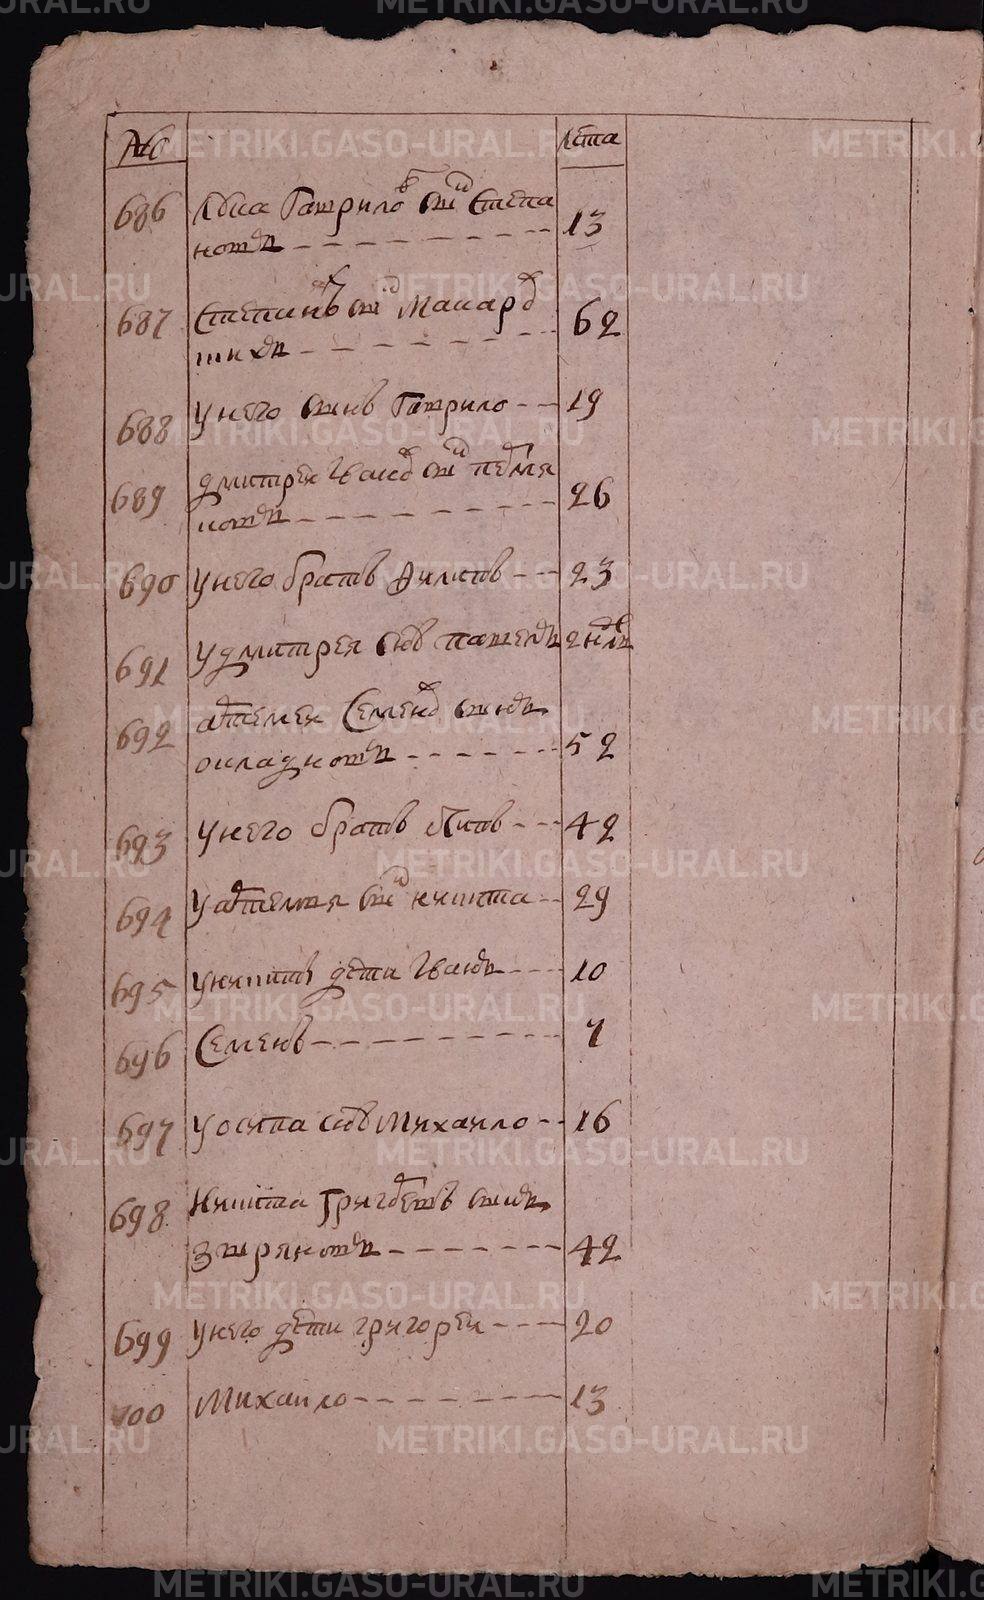 №
лета
686 Лука Гаврилов сын Степа 13
новых
687 Степанъ сын Макаро 62
выхъ
688 у него сынъ Гаврило 19
689 Дмитрей Иванов сын
новых 26
690 у него братъ Филипъ 23
691 у Дмитрея сынъ 2 недль
692 Артемей Семенов сынъ
окладновых 52
693 у него братъ 42
694 у Артемья сын Никита 29
695 у Никиты дети Иванъ 10
696 Семенъ 7
697 у Осипа сынъ Михайло 16
698 Никита Григорьевъ сынъ
Зыряновых 42
699 у него дети Григорей 20
700 Михайло 13
METRIKI.GASO-URAL.RU